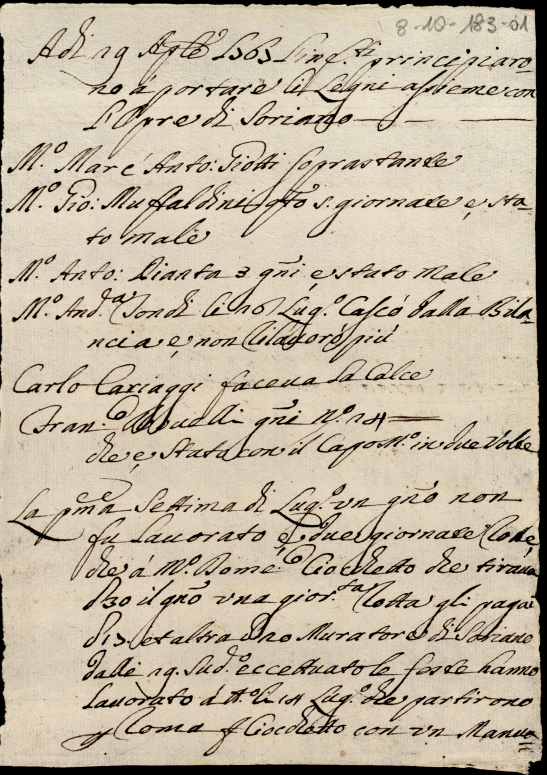 8-10-183-01
Adi 29 Aple 1763
no à portare li Legni assieme con
L'Opre di Soriano
M.º Marc' Anto: Piotti soprastante
M.º Gio: Muffaldini s. giornate è sta-
to male
M.º Anto: Pianta 3 gni, è stato male
M.º And.ª li 16 Lug.º Cascò dalla Bila-
ncia e non lauorò più
Carlo Cariaggi faceua La Calce
Fran.co gni N.º 14
che è Stato con il Capo M.º in due Volte
La pma Settima di Lug.º vn gno non
fu Lauorato e due giornate
che à M.º Dome.co Ciocchetto che tiraua
il gno vna gior.ta Rotta gli paga
et altra uno Muratore di Soriano
dalli 29. Sud.º eccettuato le feste hanno
Lauorato à li 14 Lug.º che partirono
Roma Ciocchetto con vn Manua